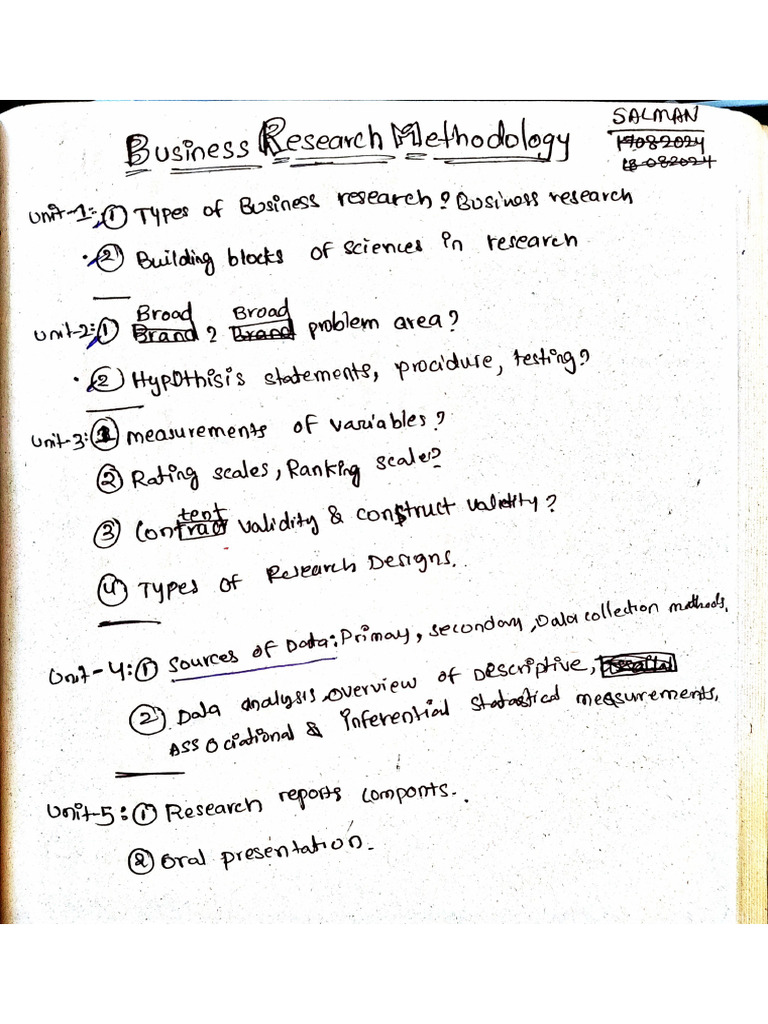 Business Research Methodology
SALMAN
17082024
18-082024
Unit-1: ① Types of Business research? Business research
② Building blocks of sciences in research
Broad Broad
Unit-2: ① Brand ? Brand problem area?
② Hypothisis statements, procidure, testing?
Unit-3: ① measurements of variables?
② Rating scales, Ranking scale?
tent
③ Contract validity & construct validity?
④ Types of Research Designs.
Unit-4: ① Sources of Data: Primay, secondary, Data collection methods.
② Data analysis, overview of Descriptive,
Associational & inferential Statastical measurements,
Unit-5: ① Research reports componts.
② Oral presentation.